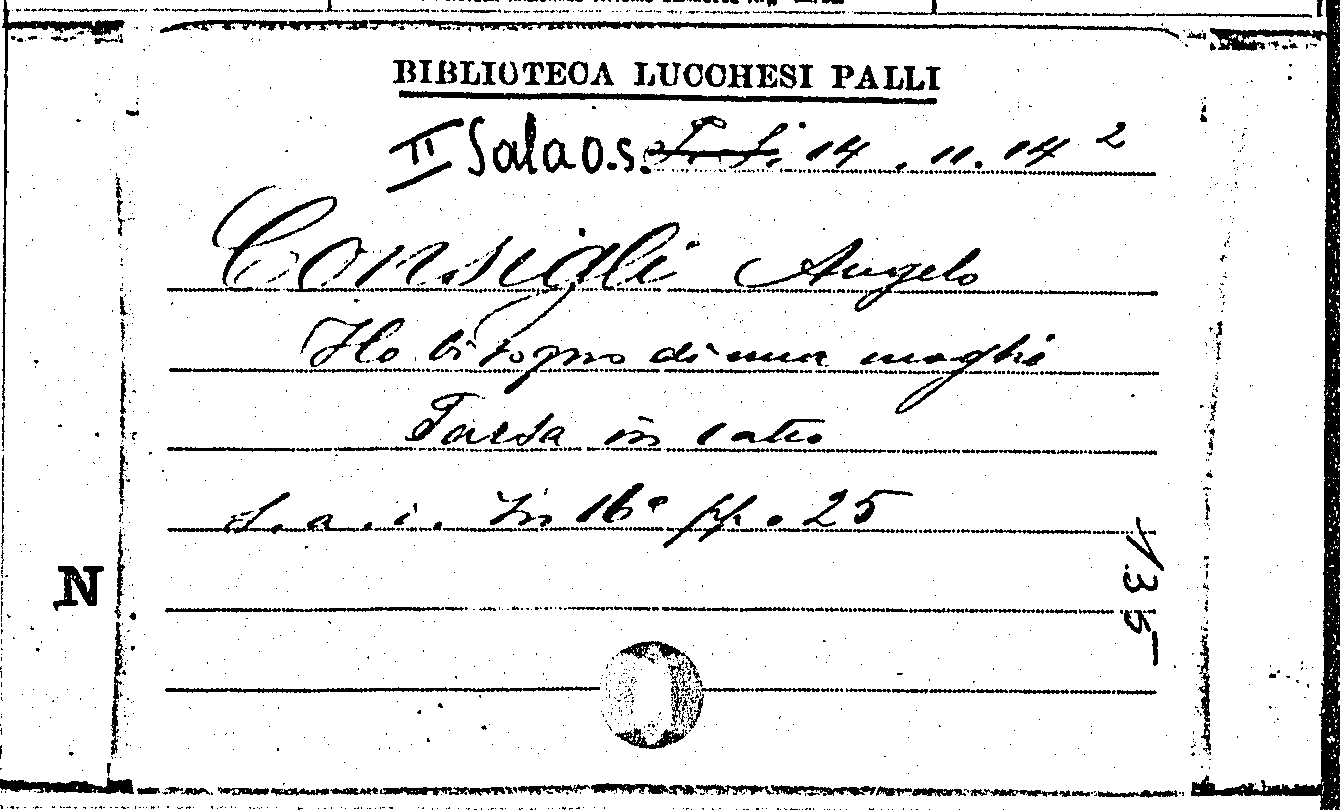 BIBLIOTECA LUCCHESI PALLI
II Sala O.S. 14.11.14 2
Consigli Angelo
Ho bisogno di una moglie
Farsa in 1 atto
S. a. i. In 16° pp. 25
135
N